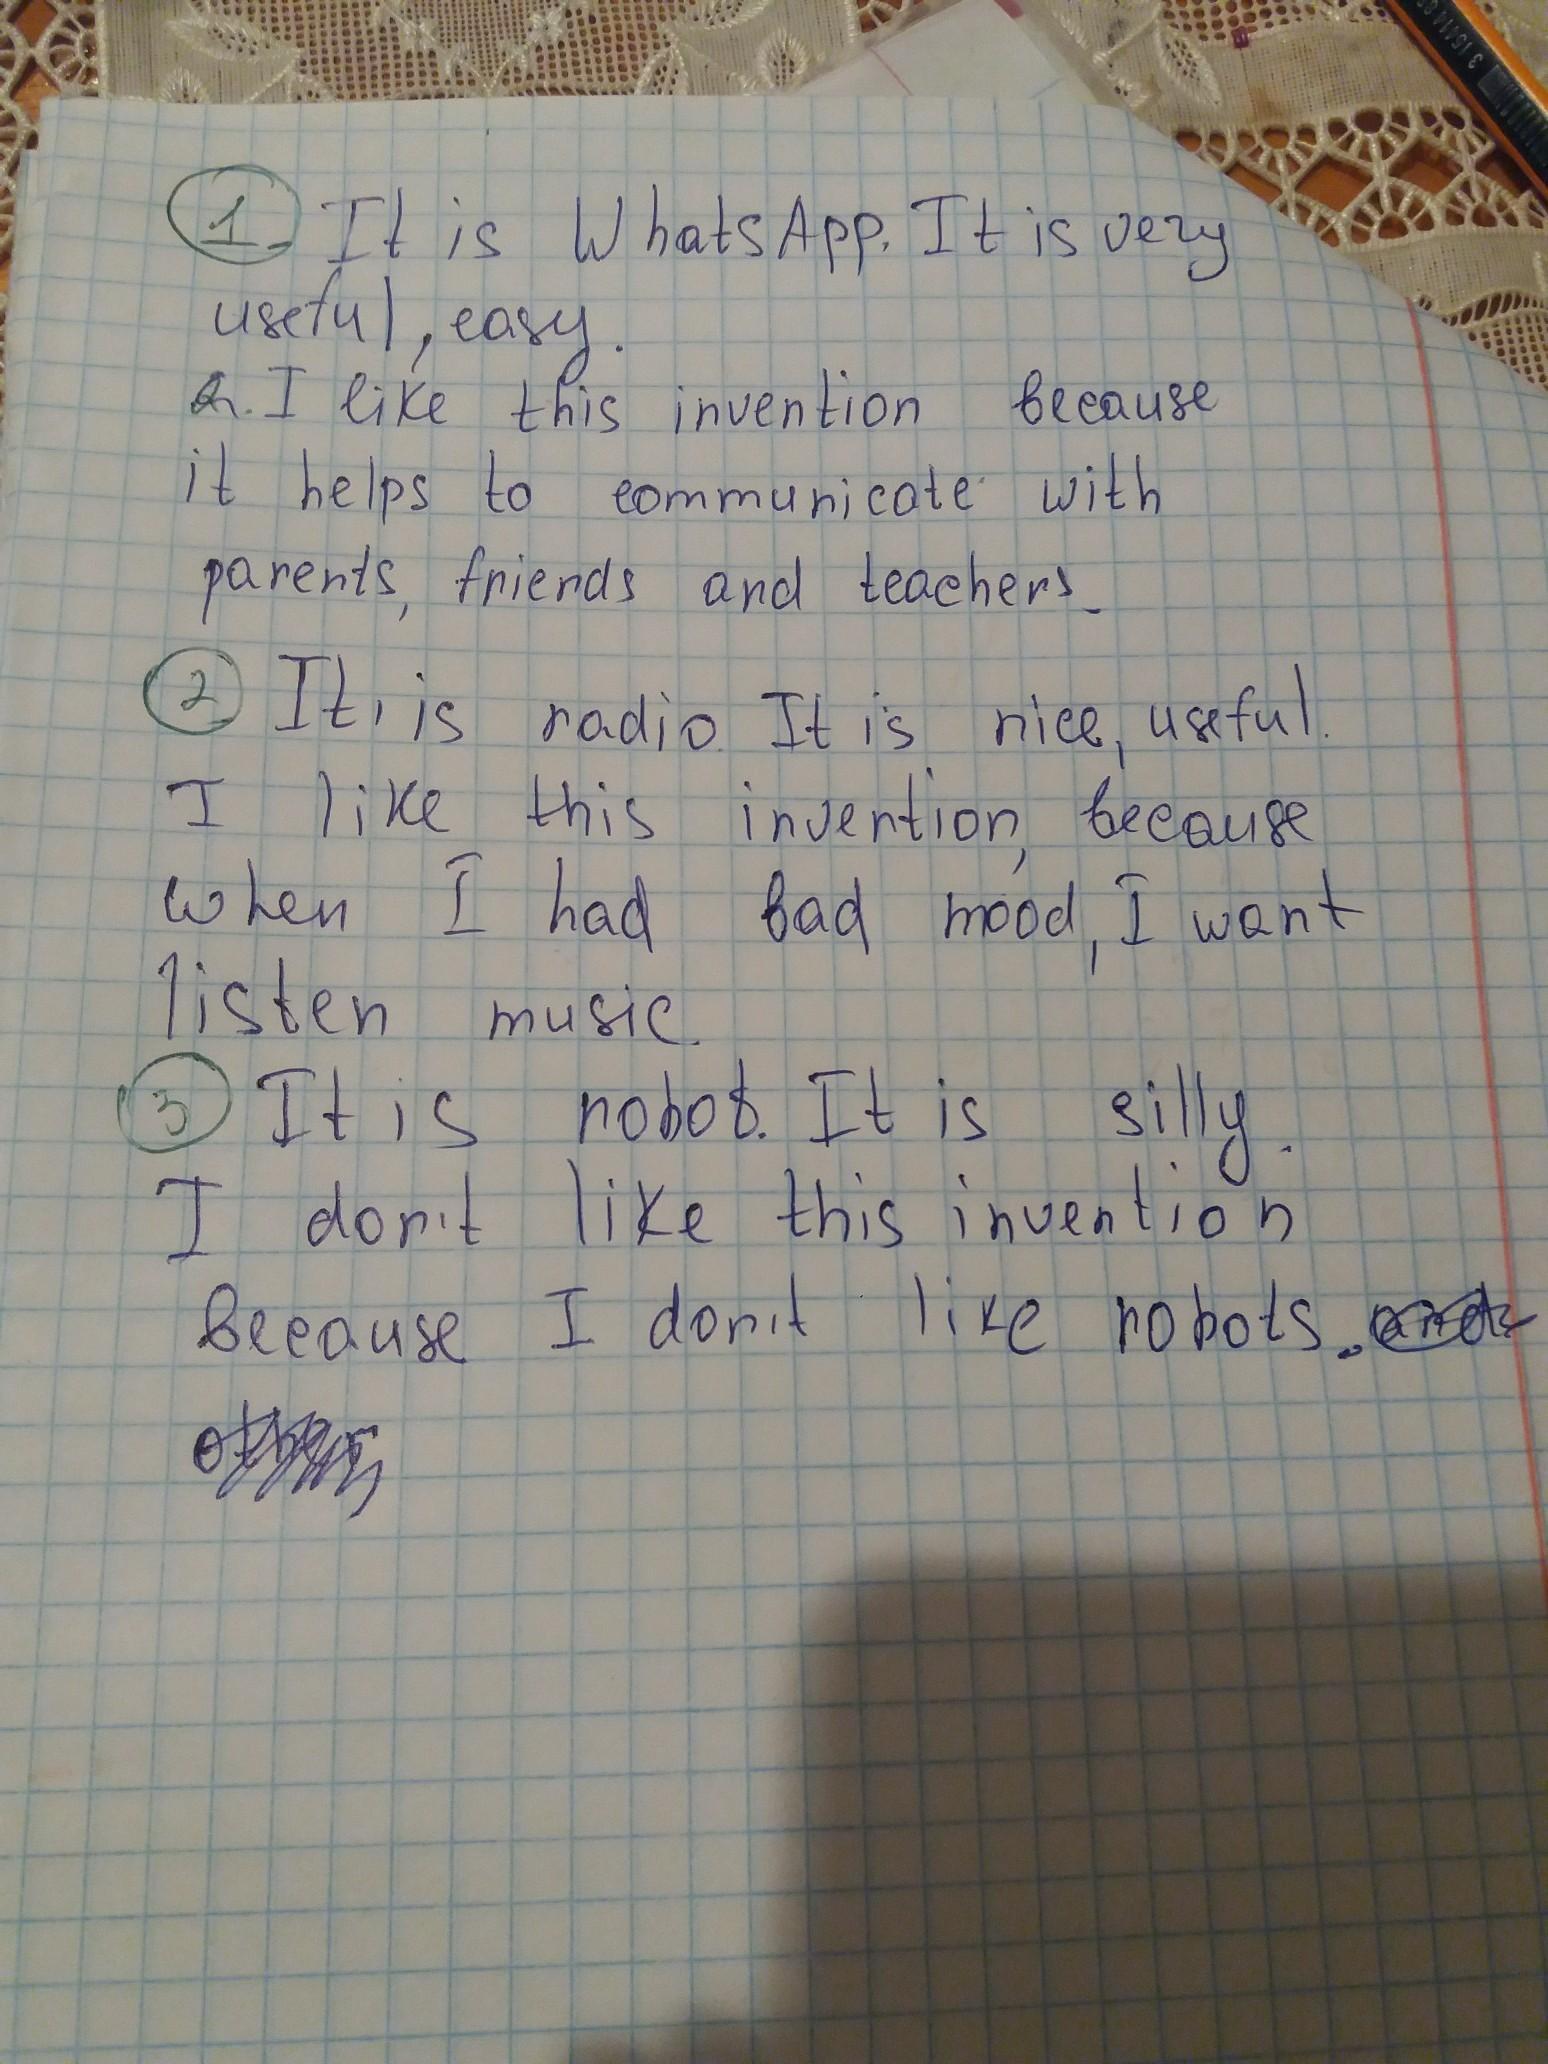 1. It is WhatsApp. It is very
useful, easy.
2. I like this invention because
it helps to communicate with
parents, friends and teachers.
2 It, is radio. It is nice, useful.
I like this invention, because
when I had bad mood, I want
listen music.
3 It is robot. It is silly.
I don't like this invention
because I don't like robots.